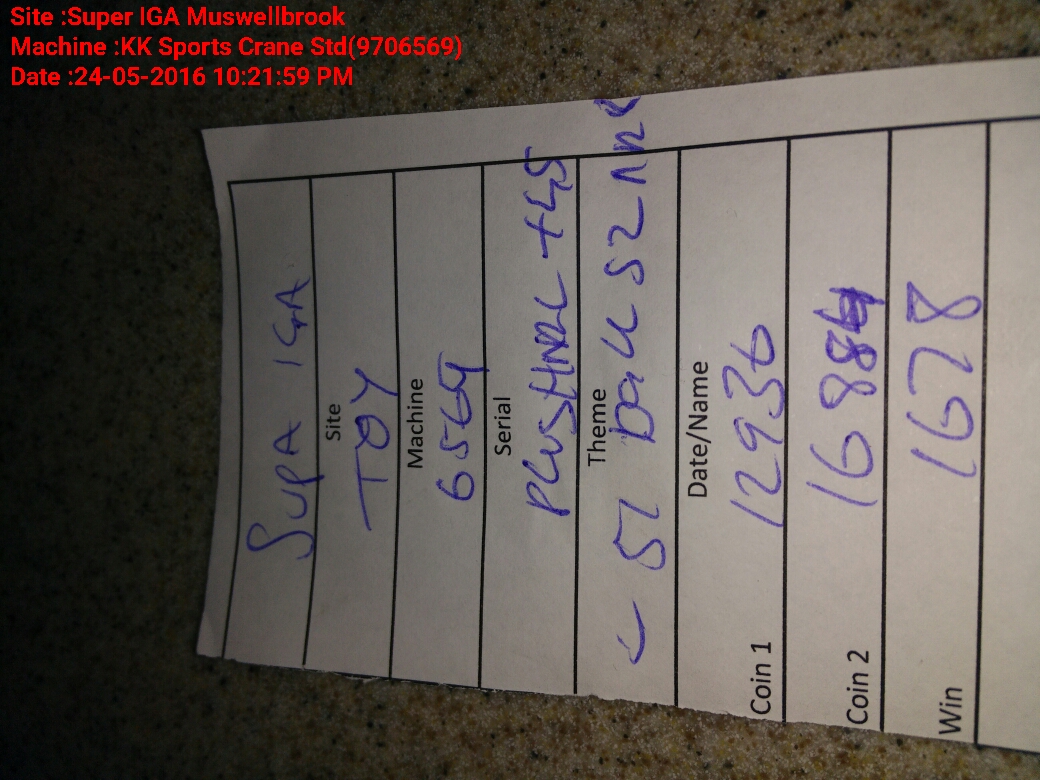 Site :Super IGA Muswellbrook
Machine :KK Sports Crane Std(9706569)
Date :24-05-2016 10:21:59 PM
SUPA IGA
Site
TOY
Machine
6569
Serial
Theme
Date/Name
Coin 1 12936
Coin 2 1688
Win 1678